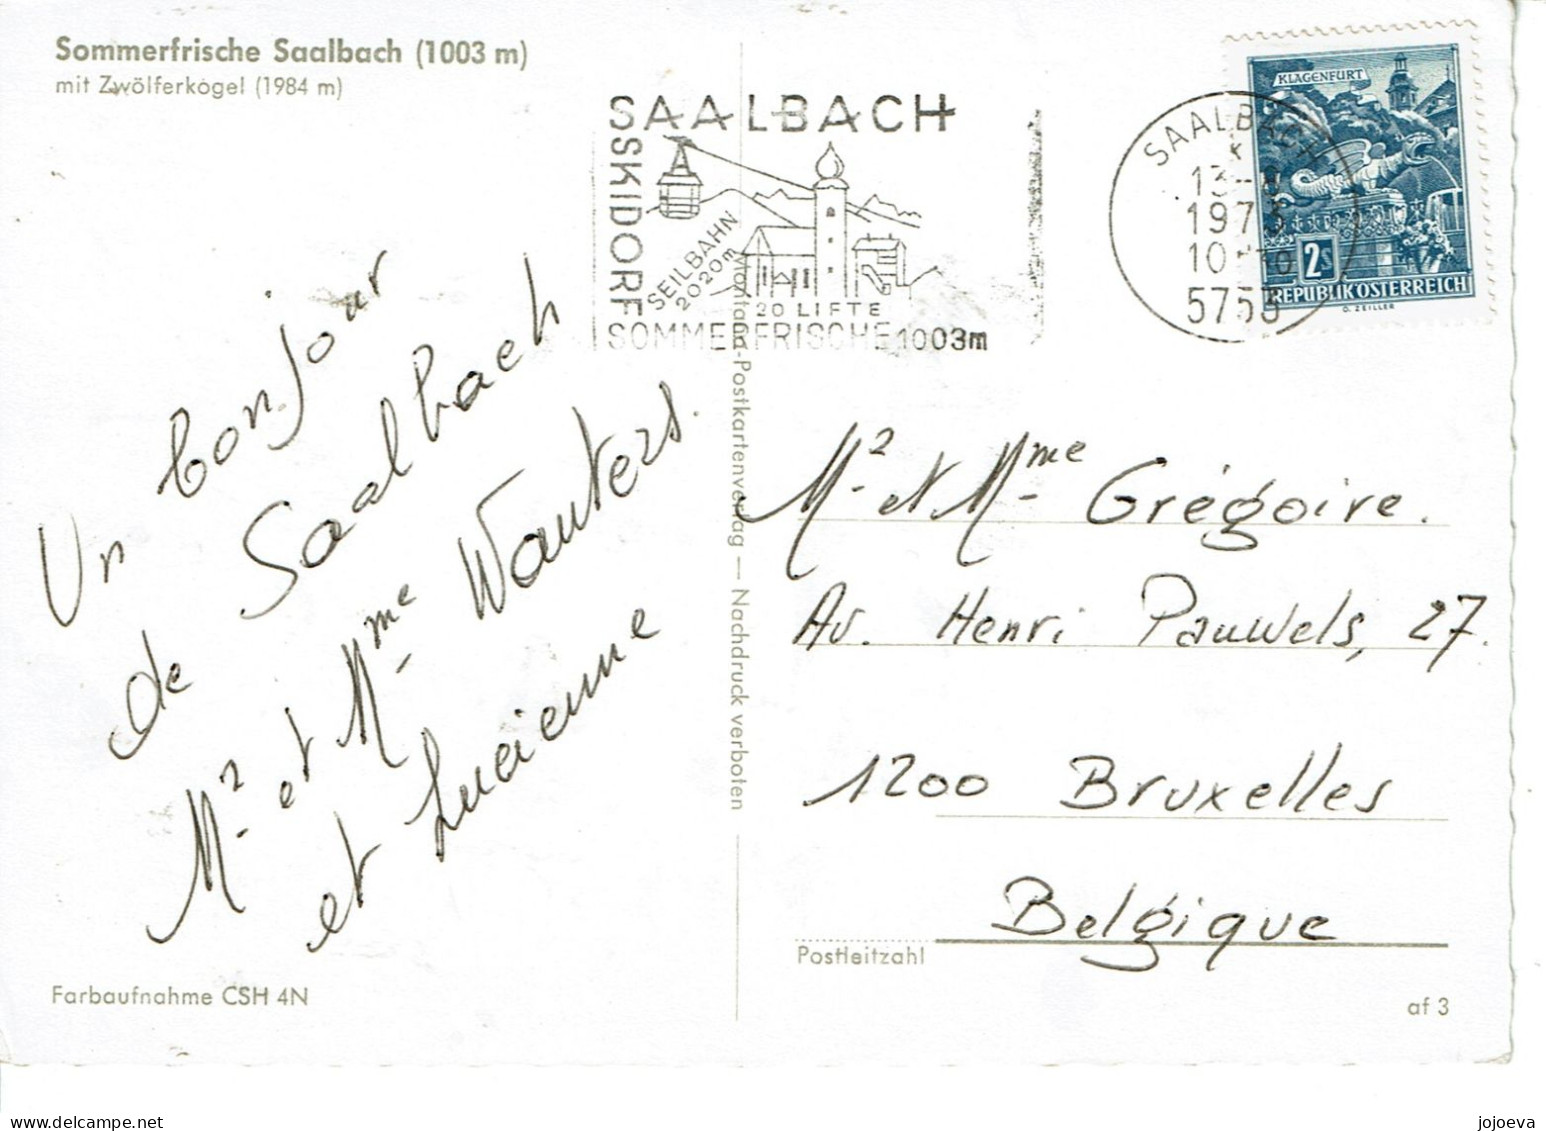 Sommerfrische Saalbach (1003 m)
mit Zwölferkogel (1984 m)
SAALBACH
SKIDORF
SEILBAHN
2020m
20 LIFTE
SOMMERFRISCHE 1003m
SAALBACH
1973
5753
KLAGENFURT
2S
REPUBLIK ÖSTERREICH
O. ZEILLER
Un bonjour
de Saalbach
Mr et Mme Wauters.
et Lucienne
Montana-Postkartenverlag — Nachdruck verboten
Mr et Mme Grégoire.
Av. Henri Pauwels, 27.
1200 Bruxelles
Belgique
Postleitzahl
Farbaufnahme CSH 4N
af 3
jojoeva